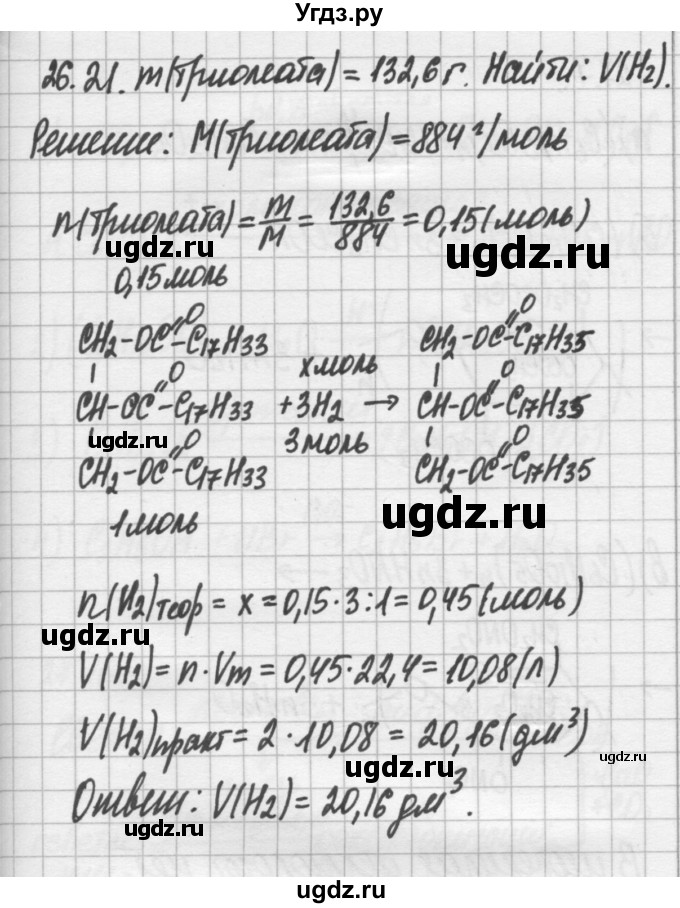 Угдз.ру
26.21. m(триолеата) = 132,6 г. Найти: V(H2).
Решение: M(триолеата) = 884 г/моль
n(триолеата) = m/M = 132,6/884 = 0,15 (моль)
ugdz.ru
ugdz.ru
0,15 моль
O O
CH2-OC-C17H33 CH2-OC-C17H35
O х моль O
CH-OC-C17H33 + 3H2 → CH-OC-C17H35
ugdz.ru O 3 моль O
CH2-OC-C17H33 CH2-OC-C17H35
ugdz.ru
1 моль
n(H2)теор = x = 0,15·3:1 = 0,45 (моль)
ugdz.ru
V(H2) = n·Vm = 0,45·22,4 = 10,08 (л)
V(H2)практ = 2·10,08 = 20,16 (дм³)
ugdz.ru
ugdz.ru
Ответ: V(H2) = 20,16 дм³.
ugdz.ru
ugdz.ru